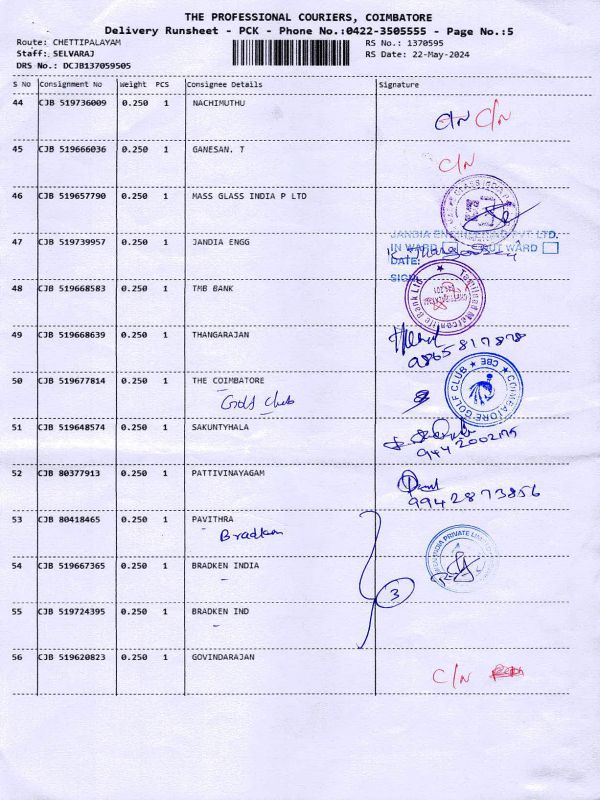 THE PROFESSIONAL COURIERS, COIMBATORE
Delivery Runsheet - PCK - Phone No.:0422-3505555 - Page No.:5
Route: CHETTIPALAYAM RS No.: 1370595
Staff: SELVARAJ RS Date: 22-May-2024
DRS No.: DCJB137059505
S No Consignment No Weight PCS Consignee Details Signature
44 CJB 519736009 0.250 1 NACHIMUTHU
C/N C/N
45 CJB 519666036 0.250 1 GANESAN. T
C/N
46 CJB 519657790 0.250 1 MASS GLASS INDIA P LTD
JANDIA ENGINEERING PVT LTD.
47 CJB 519739957 0.250 1 JANDIA ENGG
IN WARD OUT WARD
DATE:
SIGN
48 CJB 519668583 0.250 1 TMB BANK
Tamilnad Mercantile Bank Ltd
49 CJB 519668639 0.250 1 THANGARAJAN
9865817878
50 CJB 519677814 0.250 1 THE COIMBATORE
Golf Club
COIMBATORE GOLF CLUB ★ CBE ★
51 CJB 519648574 0.250 1 SAKUNTYHALA
52 CJB 80377913 0.250 1 PATTIVINAYAGAM
9942873856
53 CJB 80418465 0.250 1 PAVITHRA
Bradken
INDIA PRIVATE LIMITED
54 CJB 519667365 0.250 1 BRADKEN INDIA
3
55 CJB 519724395 0.250 1 BRADKEN IND
56 CJB 519620823 0.250 1 GOVINDARAJAN
C/N